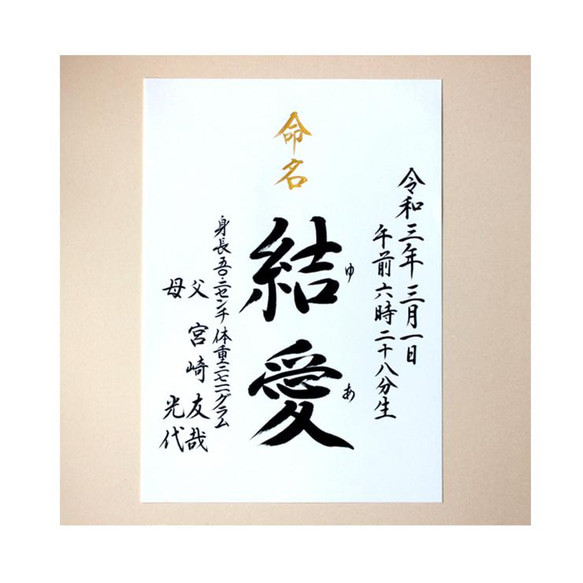 命名
令和三年三月一日
午前六時二十八分生
結愛
ゆあ
身長五〇・二センチ体重二七二一グラム
父 宮崎友哉
母 光代